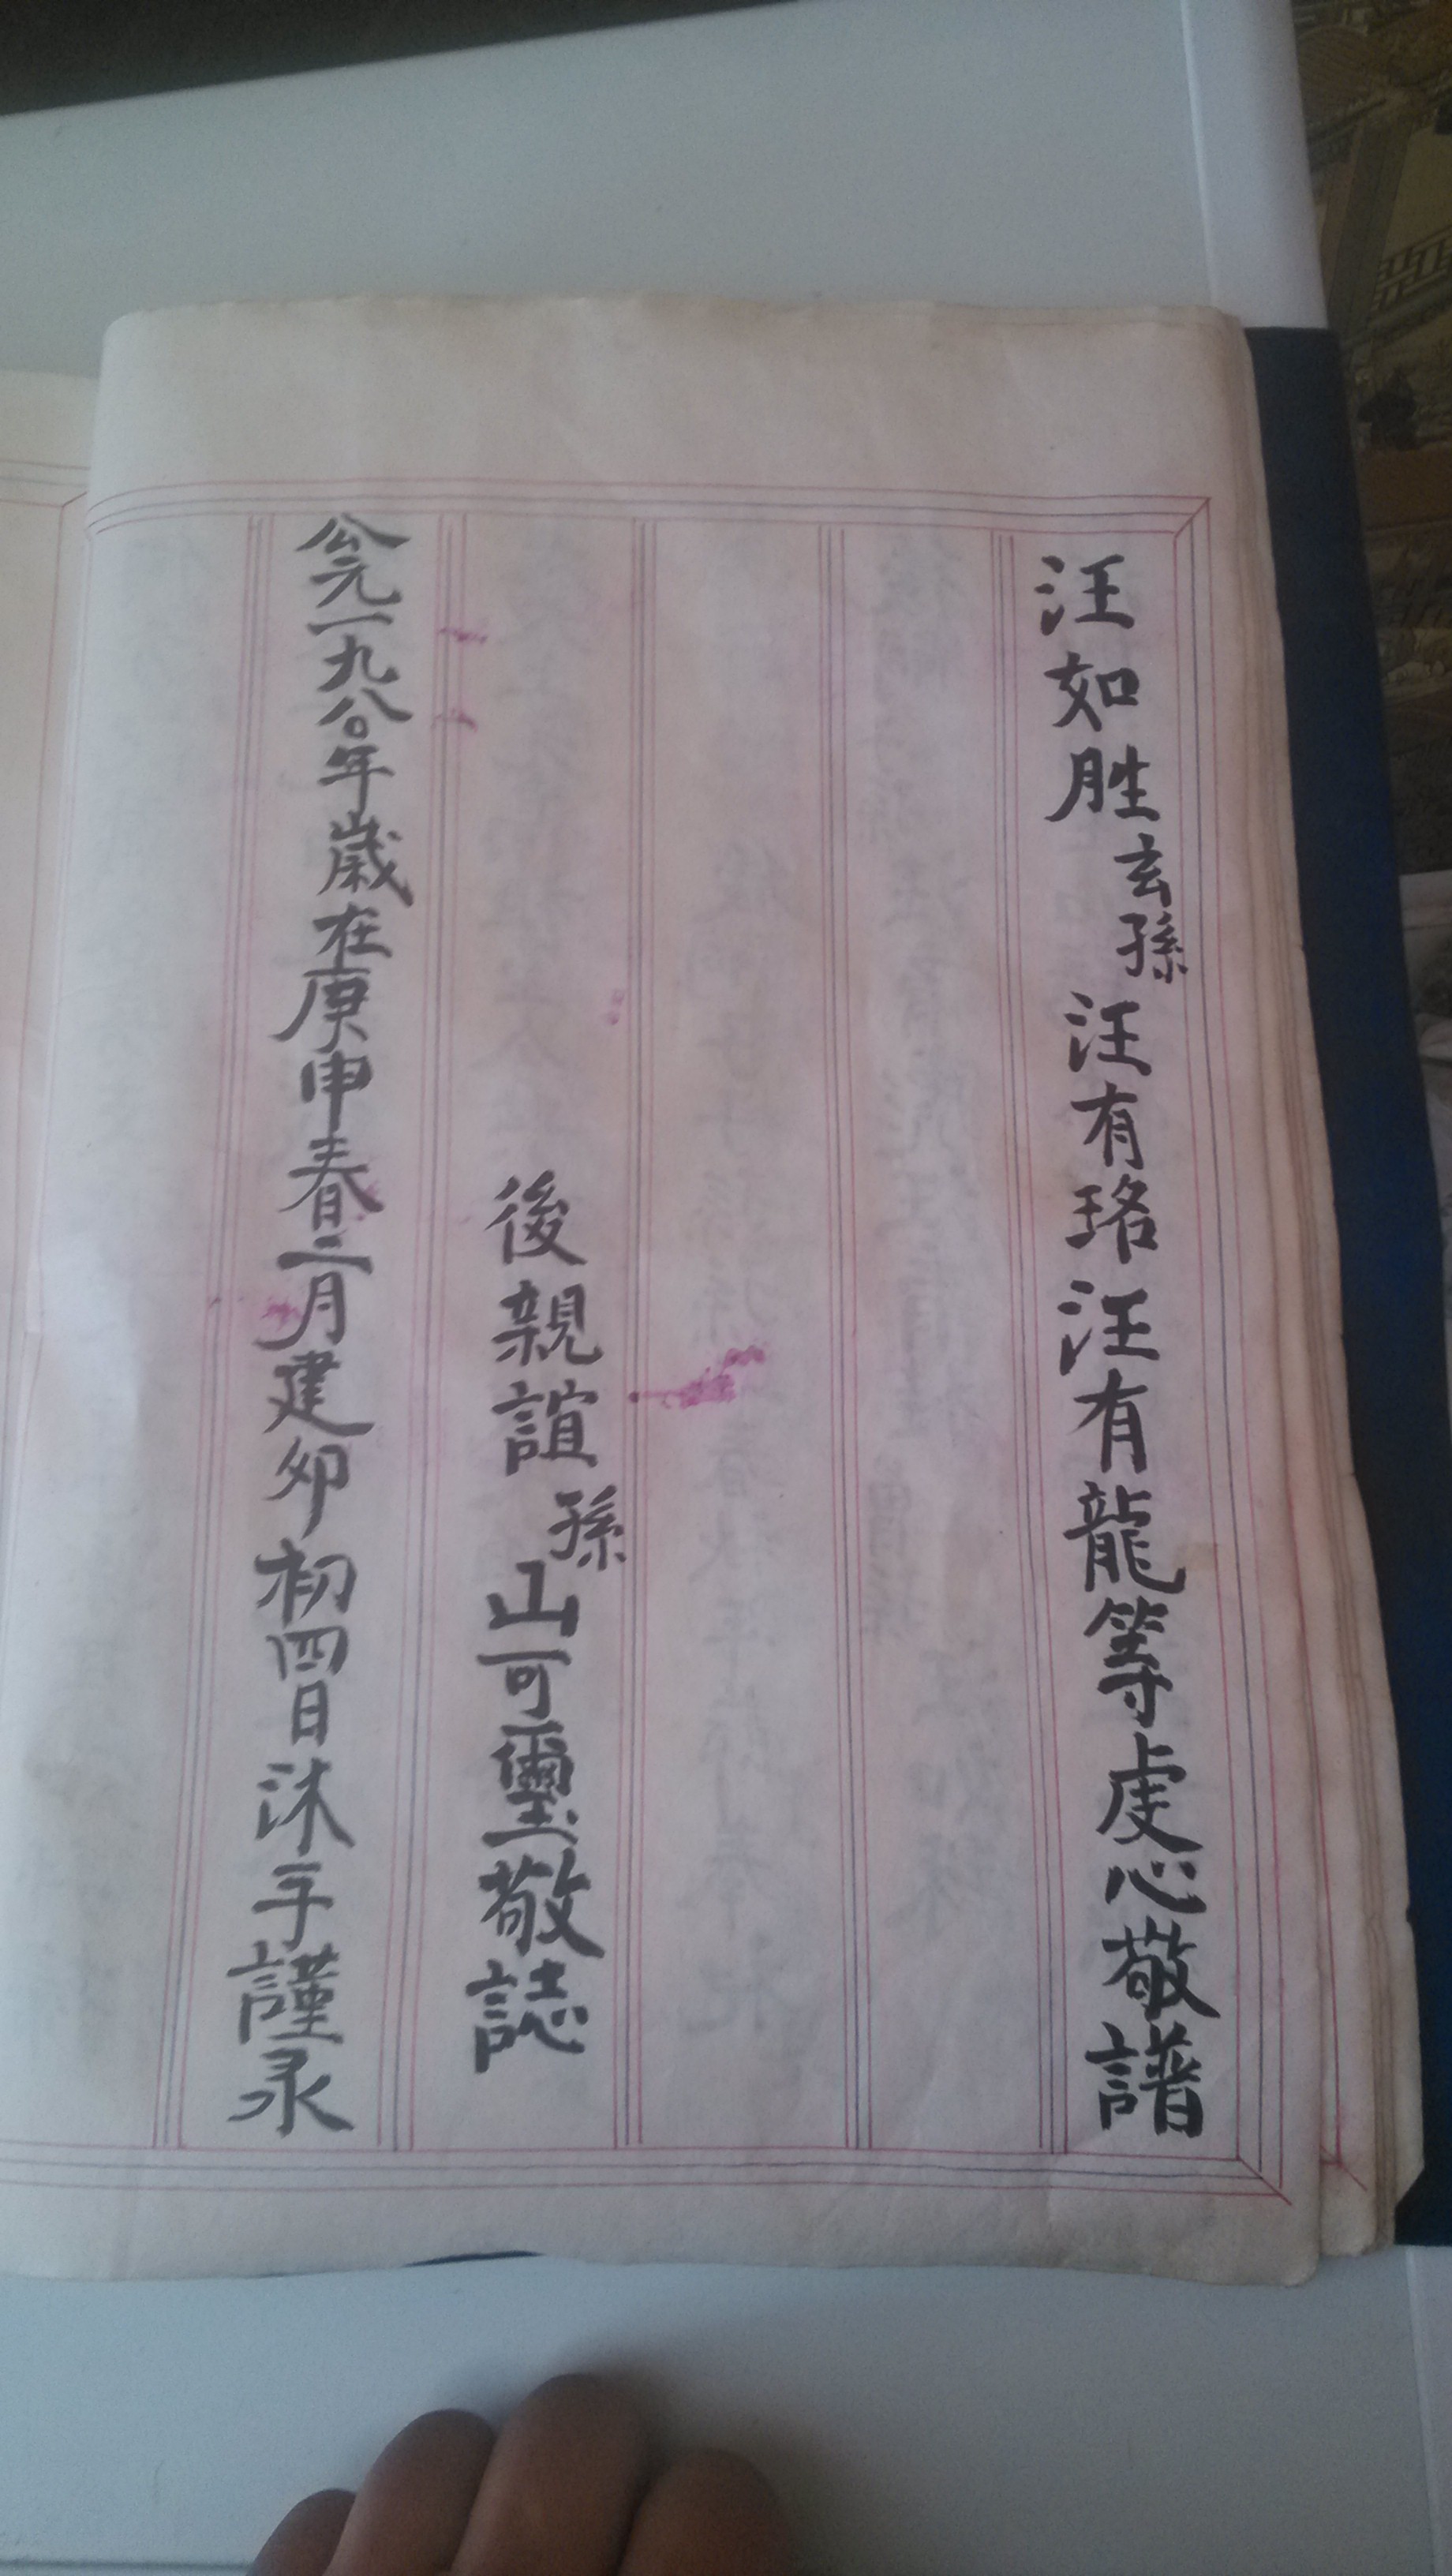 汪如胜玄孫汪有珞汪有龍等虔心敬譜
後親誼孫山可璽敬誌
公元一九八〇年歲在庚申春二月建卯初四日沐手謹录